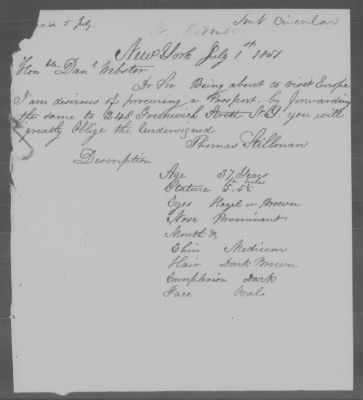 5 July.
Sent Circular
New York July 1st 1851
Honble Danl Webster
Dr Sir Being about to visit Europe
I am desirous of procuring a Passport, by forwarding
the same to 248 Greenwich Street N.Y. you will
greatly Oblige the Undersigned
Thomas Stillman
Description
Age 37 Years
Stature 5.5½ inches
Eyes Hazel or Brown
Nose Prominent
Mouth &
Chin Medium
Hair Dark Brown
Complexion Dark
Face Oval